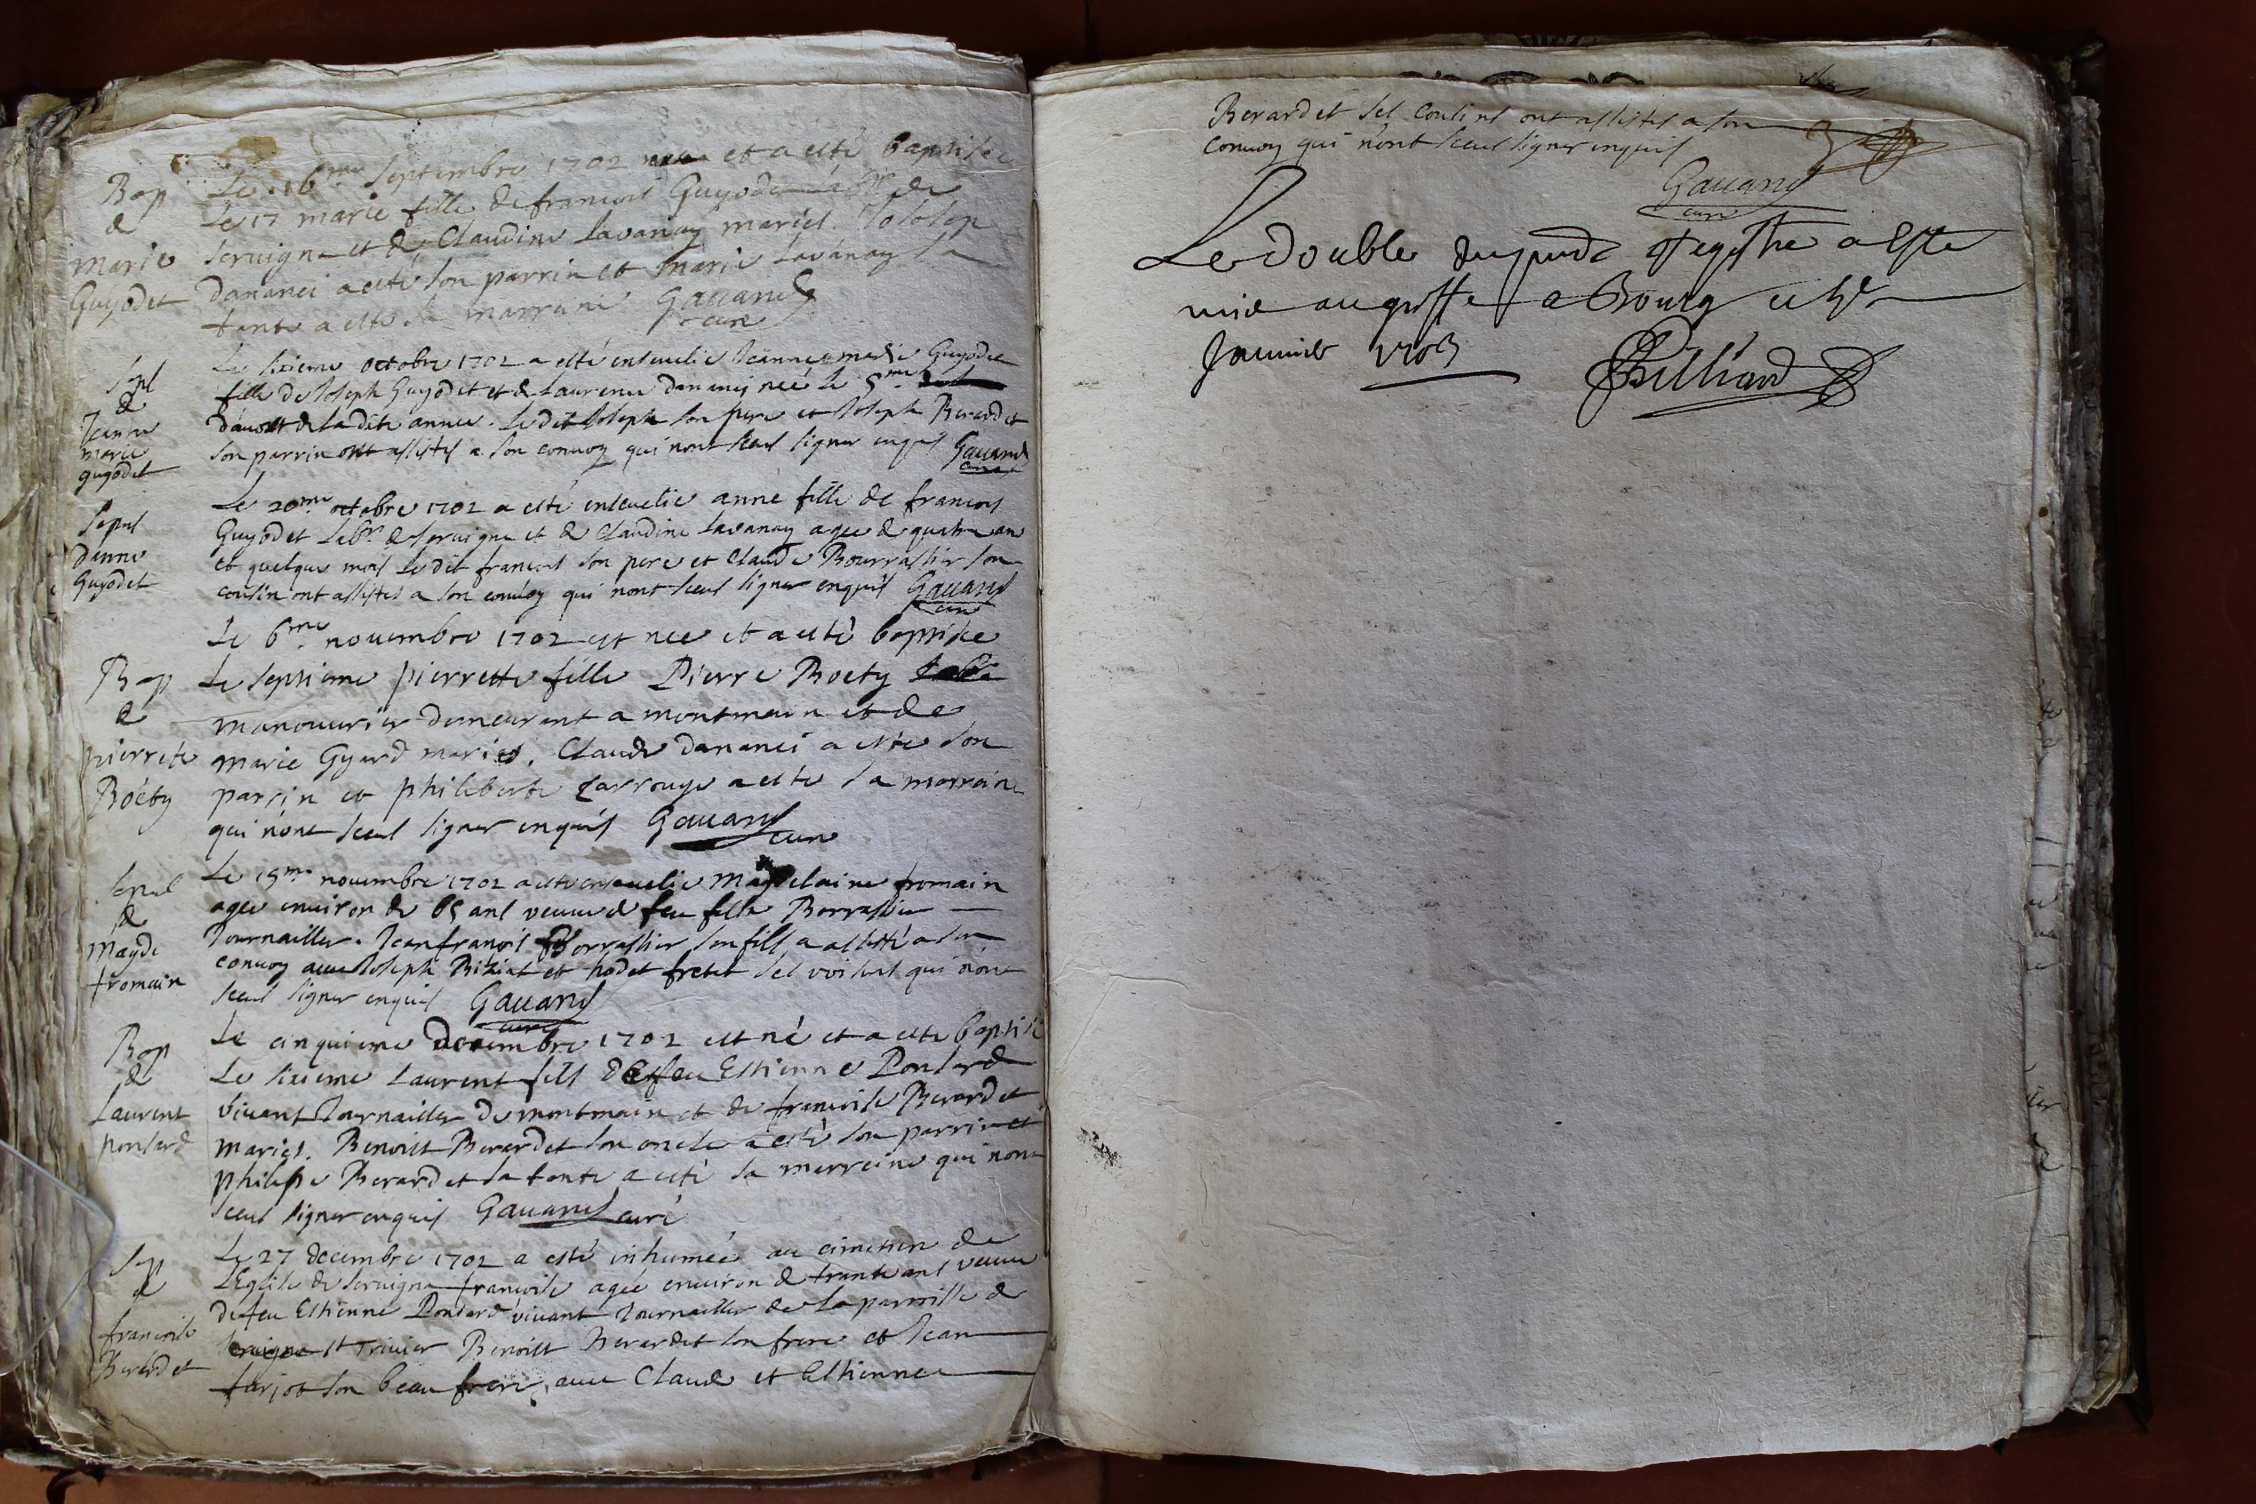 Bap
de
marie
Guyodet
Le 16.me septembre 1702 nee et a esté baptisée
le 17 marie fille de francois Guyodet labr. de
seruigna et de Claudine Lavanay mariés. Joseph
Dananci a esté son parrin et marie Lavanay sa
tante a esté sa marraine Gauand
curé
Sepl
de
Jeanne
marie
guyodet
Le sixieme octobre 1702 a esté enseuelie Jeanne marie Guyodet
fille de Joseph Guyodet et de Laurence Dananci neé le 5.me
d'aoust de la dite année. Le dit Joseph son pere et Joseph Berardet
son parrin ont assistés a son conuoy qui n'ont sceus signer enquis Gauand
curé
Sepul
danne
Guyodet
Le 20me octobre 1702 a esté enseuelie anne fille de francois
Guyodet labr. de seruigna et de Claudine Lavanay agee de quatre an
et quelque mois le dit francois son pere et Claude Bourrassier son
cousin ont assistés a son conuoy qui n'ont sceus signer enquis Gauand
curé
Bap
de
pierrete
Boéty
Le 6.me nouembre 1702 est nee et a esté baptisée
le septieme pierrette fille Pierre Boety
manouurier demeurant a montmain et de
marie Gyard mariés. Claude dananci a esté son
parrin et philiberte Larrouge a esté sa marraine
qui n'ont sceus signer enquis Gauand
curé
Sepul
de
Magde
fromain
Le 15me nouembre 1702 a esté enseuelie Magdelaine fromain
agee enuiron de 65 ans veuue de feu Borrassier
Journallier. Jean françois Borrassier son fils a assisté a son
conuoy auec Joseph Biziat et frebet ses voisins qui n'ont
sceus signer enquis Gauand
curé
Bap
de
Laurent
ponsard
Le cinquieme Decembre 1702 est né et a esté baptisé
le sixieme Laurent fils de feu Estienne Ponsard
viuant Journallier de montmain et de francoise Berardet
mariés. Benoist Berardet son oncle a esté son parrin et
philipe Berardet sa tante a esté sa marraine qui n'ont
sceus signer enquis Gauand curé
Sep
de
francoise
Berardet
Le 27 decembre 1702 a esté inhumée au cimetiere de
l'Eglise de seruigna francoise agée enuiron de trante ans veuue
de feu Estienne Ponsard viuant Journallier de la parroisse de
St Triuier Benoist Berardet son frere et Jean
farjot son beau frere, auec Claude et Estienne
Berardet ses cousins ont assistés a son
conuoy qui n'ont sceus signer enquis
Gauand
curé
Le double du pnt registre a esté
mis au greffe a Bourg ce
Januier 1703
Billiard